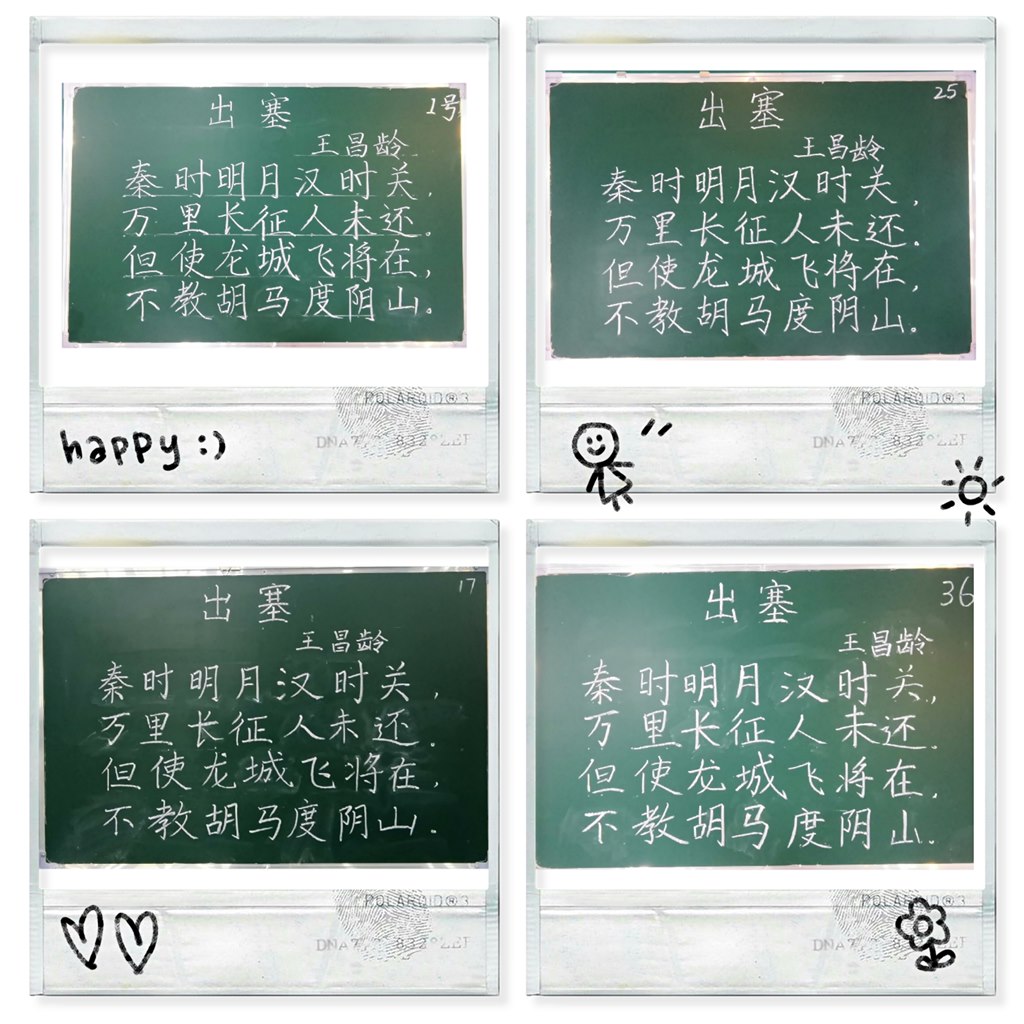 出塞
1号
王昌龄
秦时明月汉时关,
万里长征人未还.
但使龙城飞将在,
不教胡马度阴山.
POLAROID® 3
happy :)
出塞
25
王昌龄
秦时明月汉时关,
万里长征人未还.
但使龙城飞将在,
不教胡马度阴山.
POLAROID® 3
出塞
17
王昌龄
秦时明月汉时关,
万里长征人未还.
但使龙城飞将在,
不教胡马度阴山.
POLAROID® 3
出塞
36
王昌龄
秦时明月汉时关,
万里长征人未还.
但使龙城飞将在,
不教胡马度阴山.
POLAROID® 3